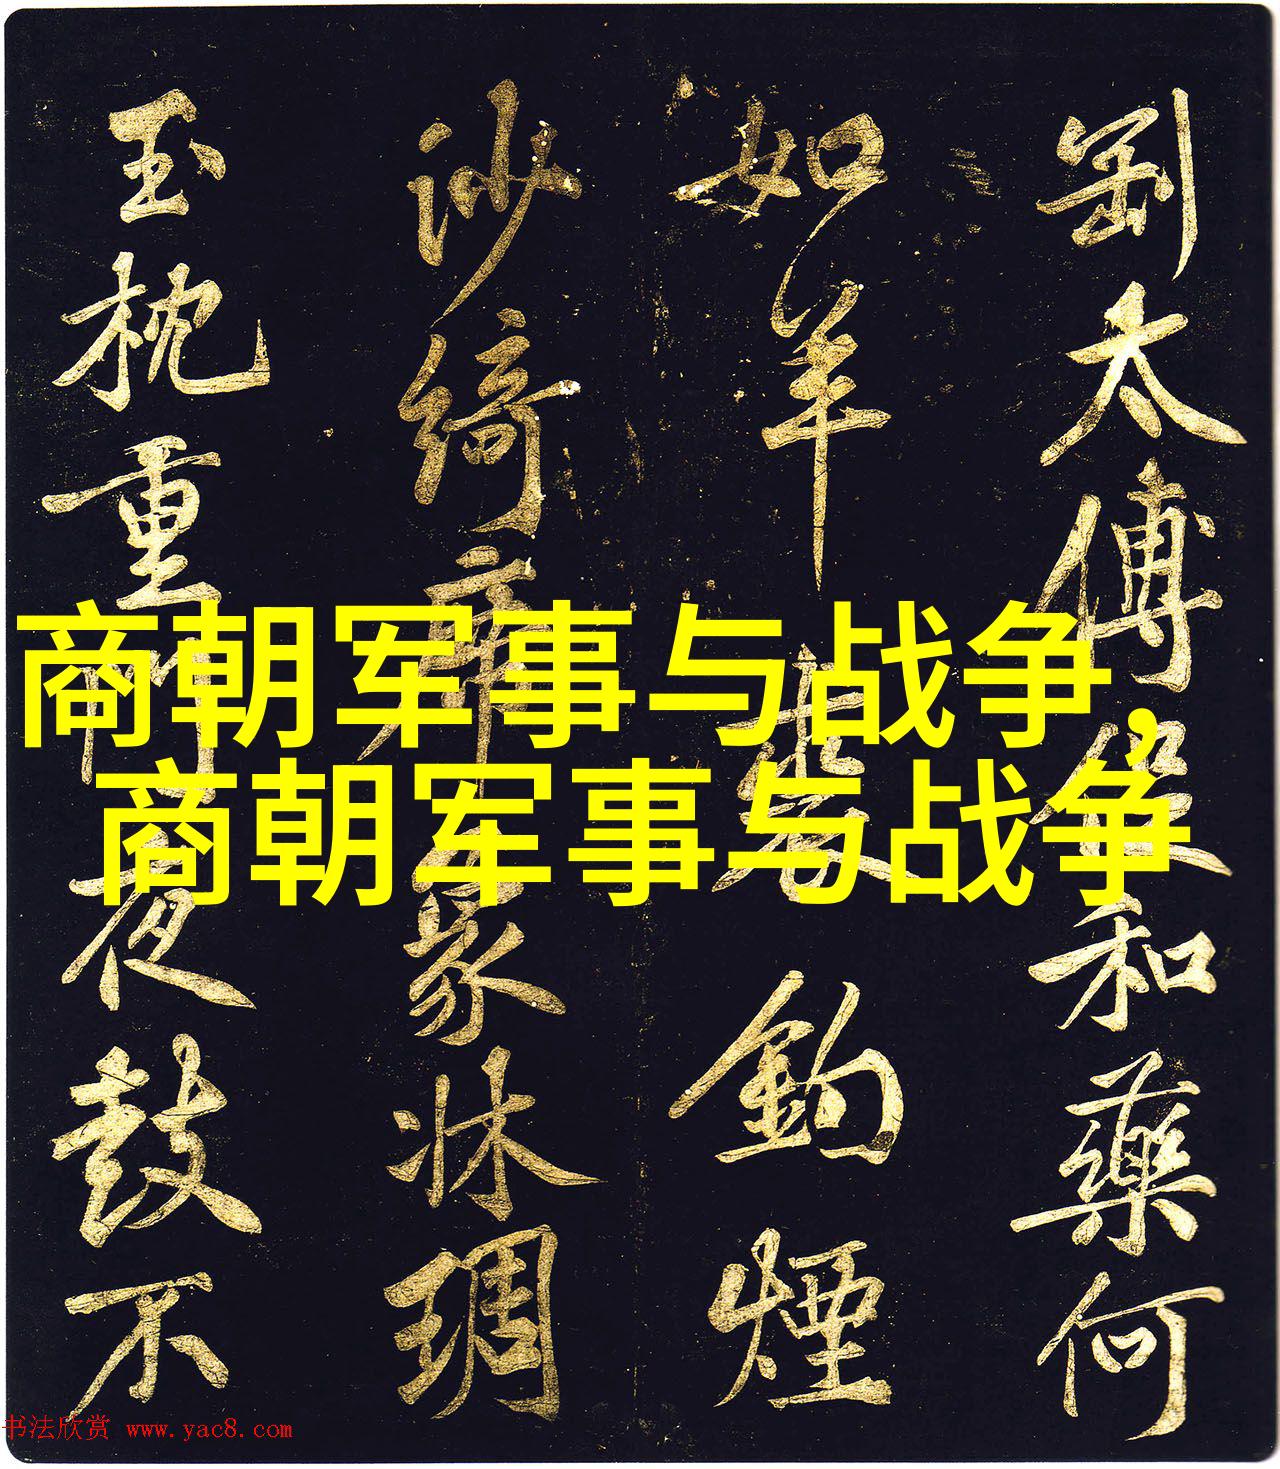 商朝军事与战争，
商朝军事与战争
太傅和藥何
如羊裘釣煙
沙綺席象牀琱
玉枕重門夜鼓不
书法欣赏 www.yac8.com